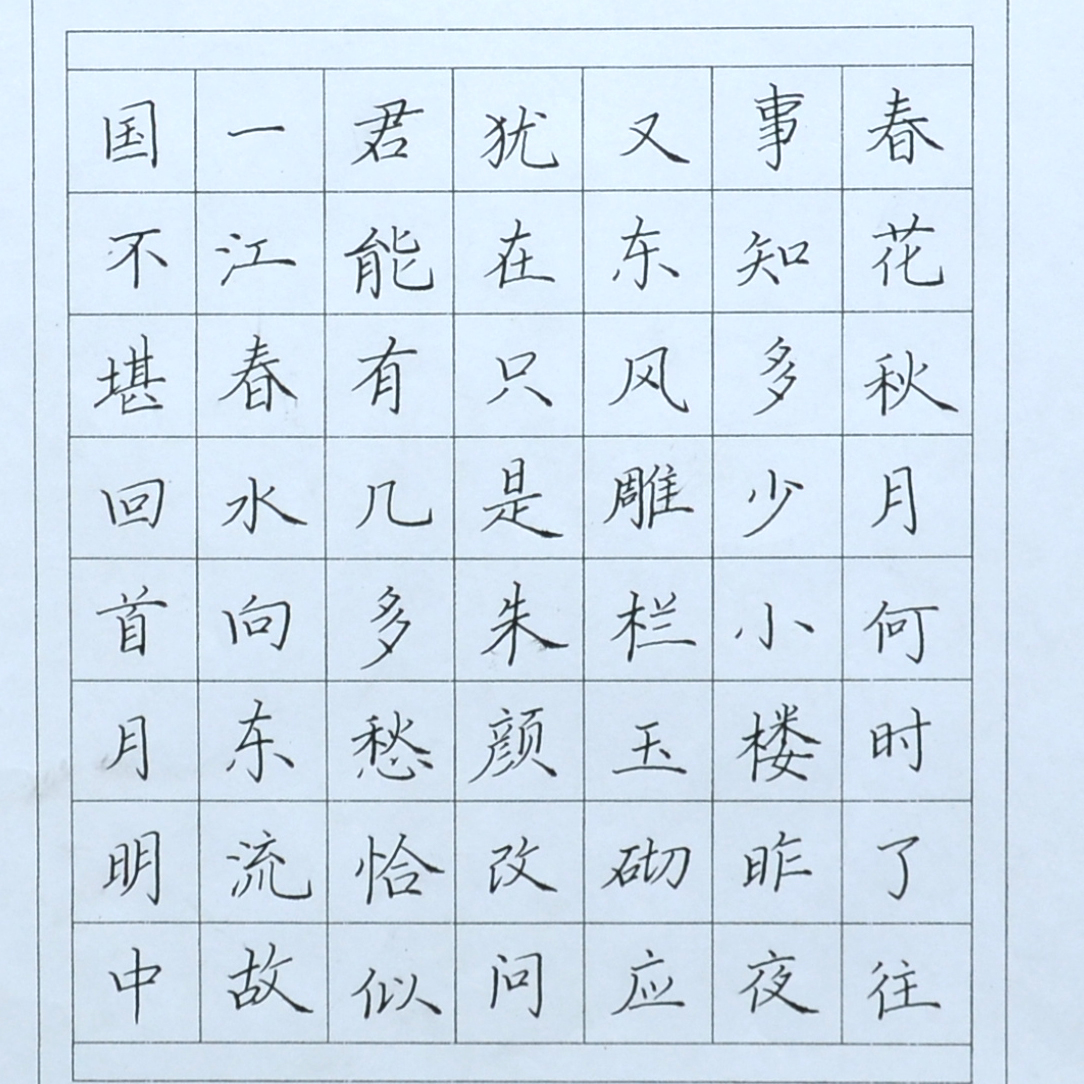 春花秋月何时了往
事知多少小楼昨夜
又东风雕栏玉砌应
犹在只是朱颜改问
君能有几多愁恰似
一江春水向东流故
国不堪回首月明中